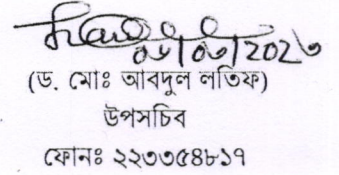 (ড. মোঃ আবদুল লতিফ)
উপসচিব
ফোনঃ ২২৩৩৫৪৮১৭